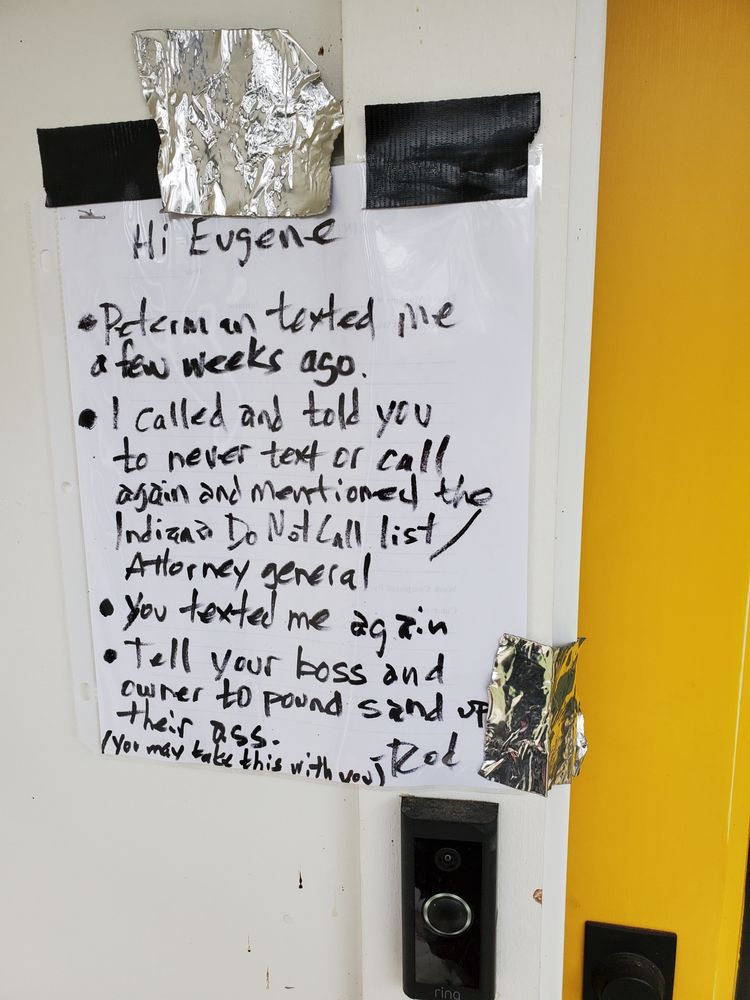 Hi Eugene
• Peterman texted me
a few weeks ago.
• I called and told you
to never text or call
again and mentioned the
Indiana Do Not Call list/
Attorney general
• You texted me again
• Tell your boss and
owner to pound sand up
their ass.
(You may take this with you) -Rod
ring